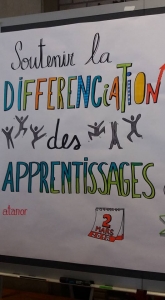 Soutenir la
DIFFERENCIATION
des
APPRENTISSAGES
2
MARS